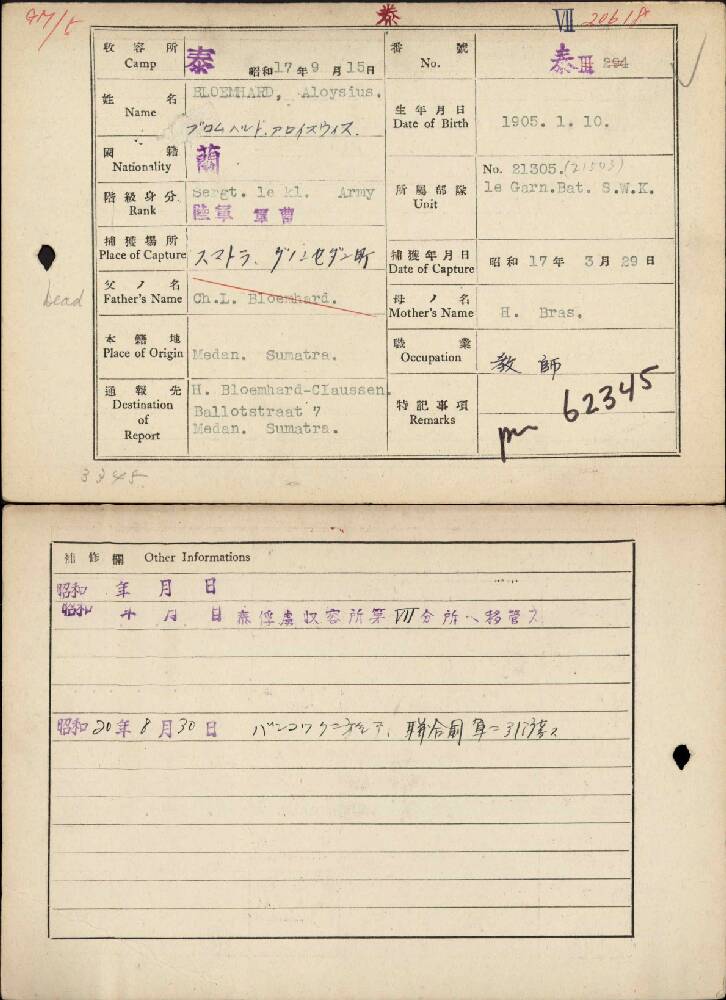 泰 VII 20618
收容所 Camp 泰 昭和17年9月15日 番號 No. 泰III 294
姓名 Name BLOEMHARD, Aloysius.
ブロムハルド.アロイズウィズ. 生年月日 Date of Birth 1905. 1. 10.
國籍 Nationality 蘭
階級身分 Rank Sergt. 1e kl. Army
陸軍 軍曹
所屬部隊 Unit No. 21305.(21503)
1e Garn.Bat. S.W.K.
捕獲場所 Place of Capture スマトラ、
捕獲年月日 Date of Capture 昭和 17年 3月 29日
父ノ名 Father's Name Ch.L. Bloemhard. 母ノ名 Mother's Name H. Bras.
本籍地 Place of Origin Medan. Sumatra. 職業 Occupation 教師
通報先 Destination of Report H. Bloemhard-Claussen.
Ballotstraat 7
Medan. Sumatra.
特記事項 Remarks 62345
3345
補修欄 Other Informations
昭和 年 月 日
昭和 年 月 日 泰俘虜収容所第VII分所ヘ移管ス
昭和20年8月30日 バンコックニ於テ、聯合國軍ニ引渡ス